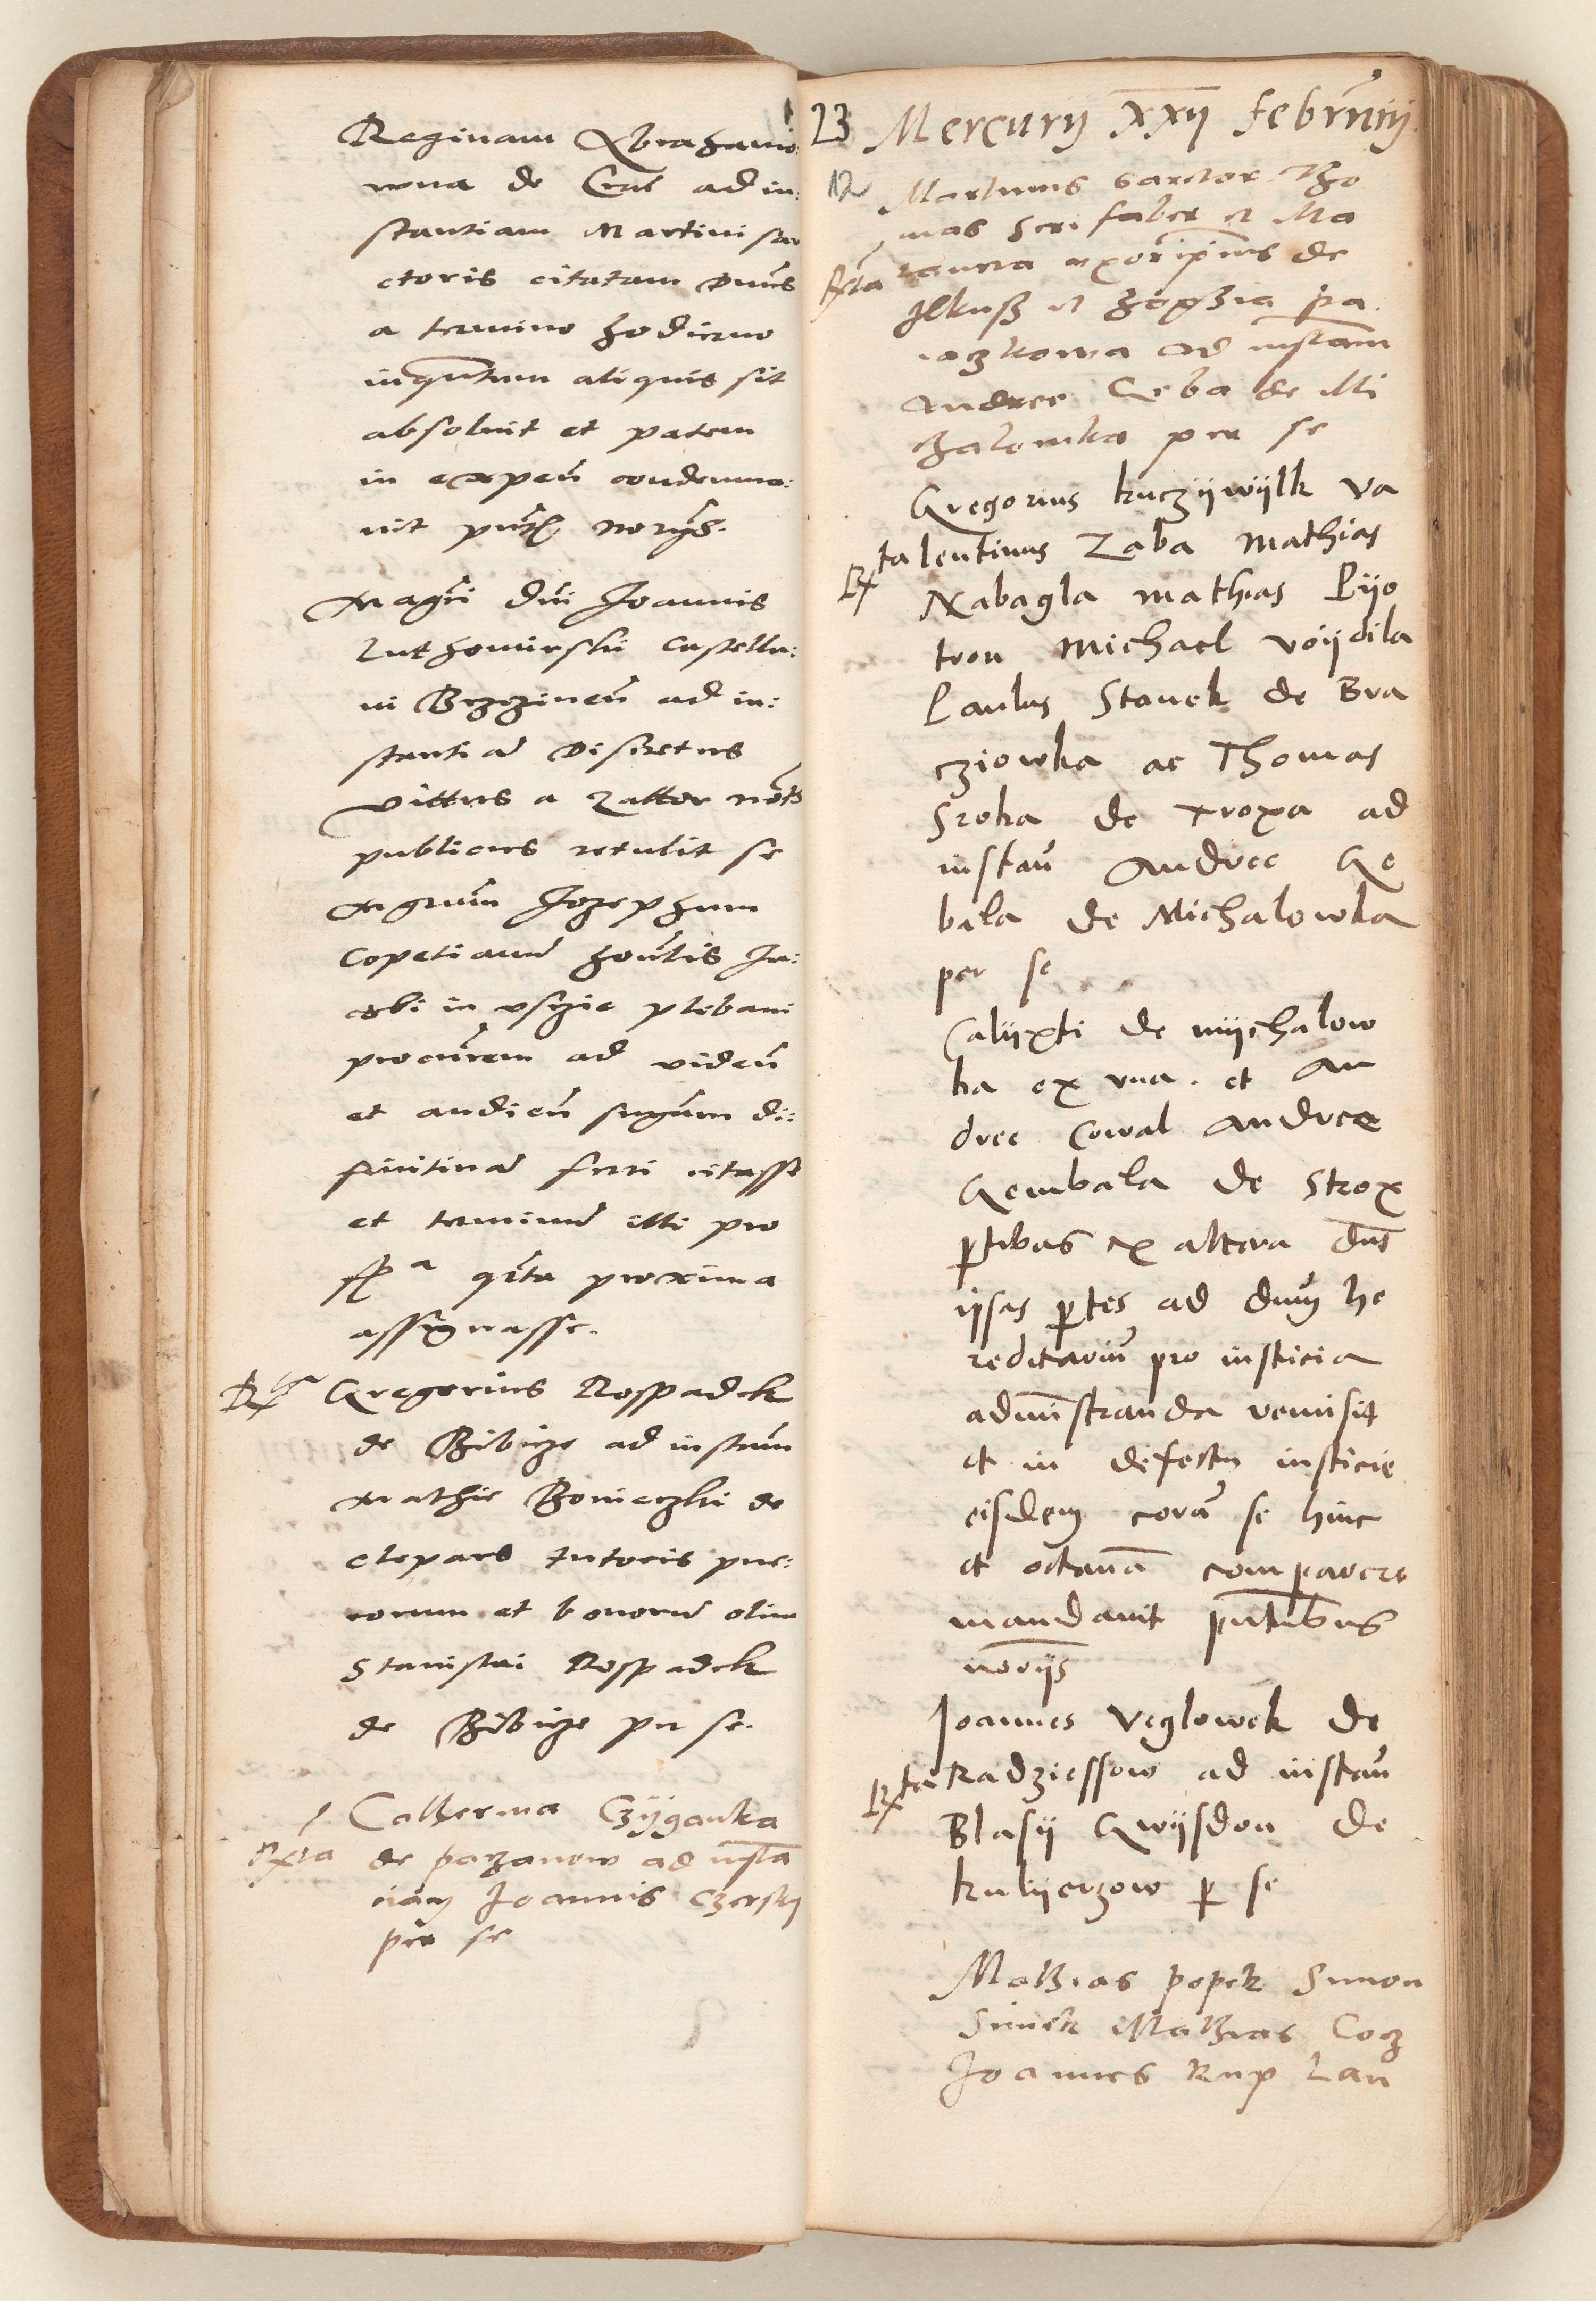 Reginam Abrahamo
wna de Crac ad in:
stantiam Martini sar
ctoris citatam Dnus
a termino hodierno
inquntum aliquis sit
absoluit et patem
in expen condemna:
uit pntt norys.
Magci dni Joannis
Luthomirskii Castella:
ni Brzezinen ad in:
stantia Discretus
Vittus a Zattor nots
publicus retulit se
Mgrum Jozephum
Copetianu honlis Ja:
cobi in vszzie plebani
procurem ad viden
et audien sngam di:
finitiua ferri citasse
et terminu illi pro
fr a qrta proxima
assignasse.
Rta Gregorius Rosspadek
de Bibicze ad instam
Mathie Bonieczki de
Clepars tutoris pue:
rorum et bonoru olim
Stanislai Rosspadek
de Bibicze per se.
Catherina Czyganka
Rxta de paczanow ad insta
ciam Joannis Czersky
per se
23 Mercurij xxij februarij
Martinus sartor Tho
mas Seri faber et Ma
Rxta zanna uxor ipius de
Ilkusz et
ad instam
Andree Geba de Mi
chalowka per se
Gregorius kuczywylk Va
Rxta lentinus Zaba Mathias
Nabagla mathias Pijo
tron Michael Voijdila
Paulus Stanek de Bra
cziowka ac Thomas
Sroka de Troxa ad
instan Andree Ge
bala de Michalowka
per se
Calijxti de mijchalow
ka ex vna . et An
dree Cowal Andree
Gembala de Strox
ptibus ex altera dns
ijsas ptes ad dnum he
reditariu pro iusticia
administranda remisit
et in defectu iusticie
eisdem cora se hinc
et octaua comparere
mandauit pntibus
norijs
Joannes Veglowek de
Rxta Radziessow ad instan
Blasij Gwijsdon de
kulijerzow p se
Mathias popek Simon
Simek Mathias Cocz
Joannes Kup Lau